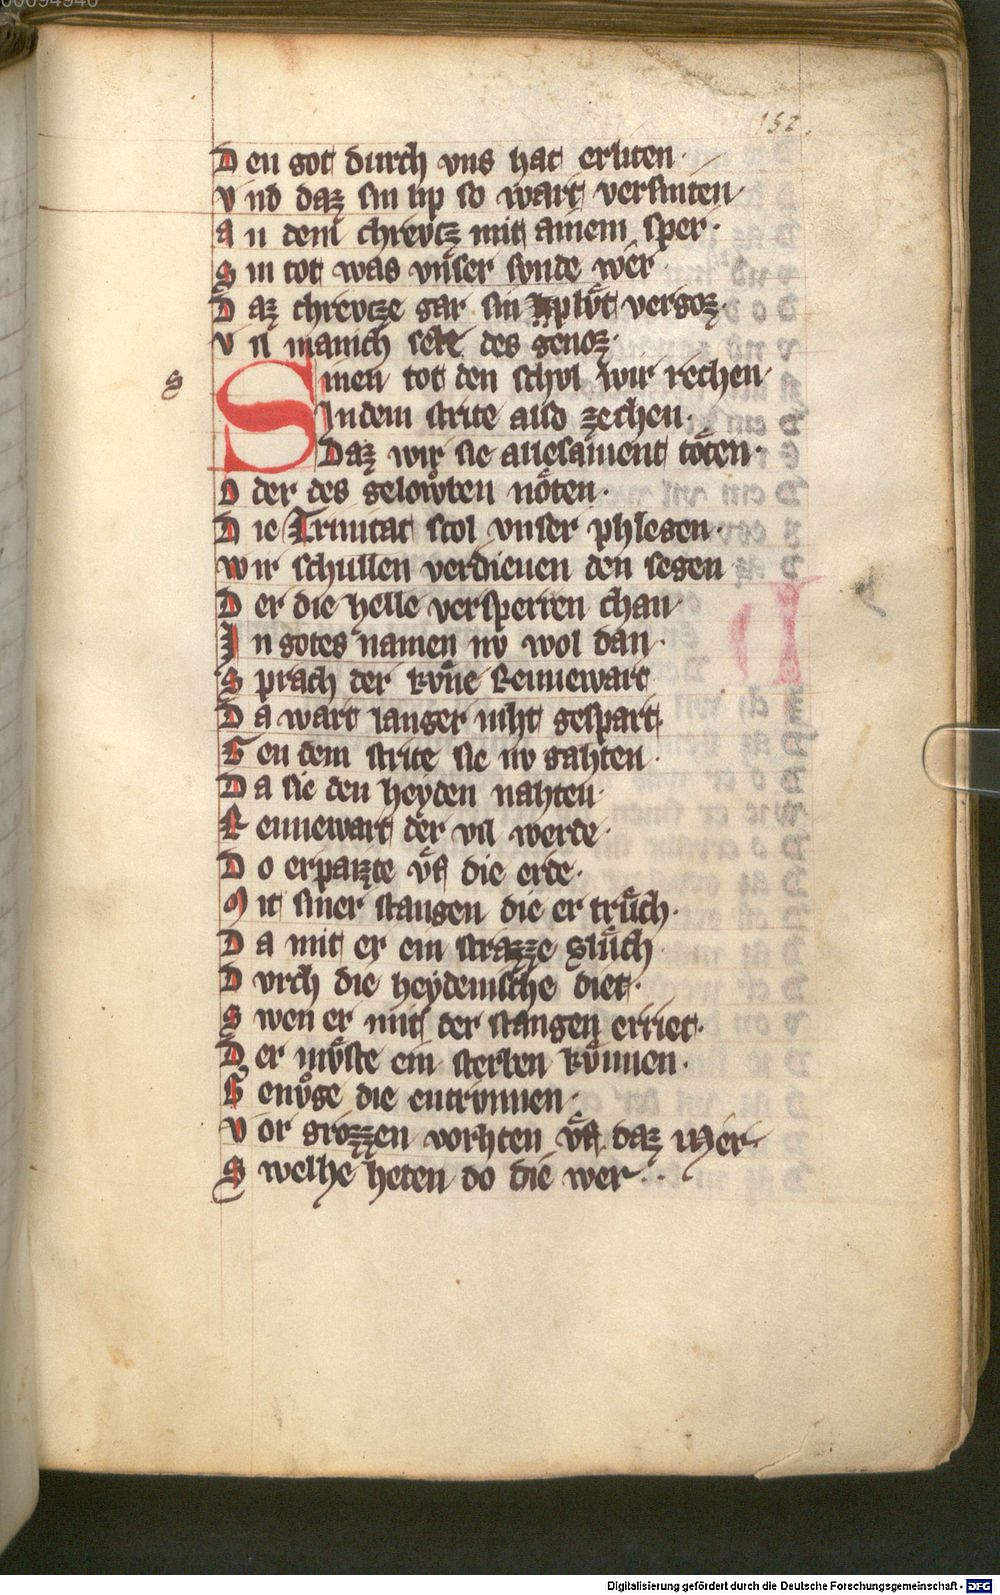 00094946
152.
D en got durch vns hat erliten·
V nd daz sin lip so wart versniten
a n dem chrevtz mit ainem sper·
S in tot was vnser synde wer
D az chrevtze gar sin plvͦt vergoz·
V n manich sele des genoz·
s
Sinen tot den schvl wir rechen·
Indem strite and zechen·
Daz wir sie allesament toͤten·
O der des gelovͦbten noͤten·
D ie Trinitat scol vnser phlegen·
w ir schullen verdienen den segen
D er die helle versperren chan
I n gotes namen nv wol dan·
S prach der kvͤne Rennewart
D a wart langer niht gespart·
G en dem strite sie nv gahten·
D a sie den heyden nahten·
R ennewart der vil werde·
D o erpaizte vf die erde·
M it siner stangen die er trvͦch·
D a mit er ein strazze slvͦch·
D vrch die heydenische diet·
S wen er mit der stangen erriet·
D er mvͦste ein sterben kvnnen·
G envͦge die entrvnnen·
V or grozzen vorhten vf daz mer·
S welhe heten do die wer··
Digitalisierung gefördert durch die Deutsche Forschungsgemeinschaft - DFG